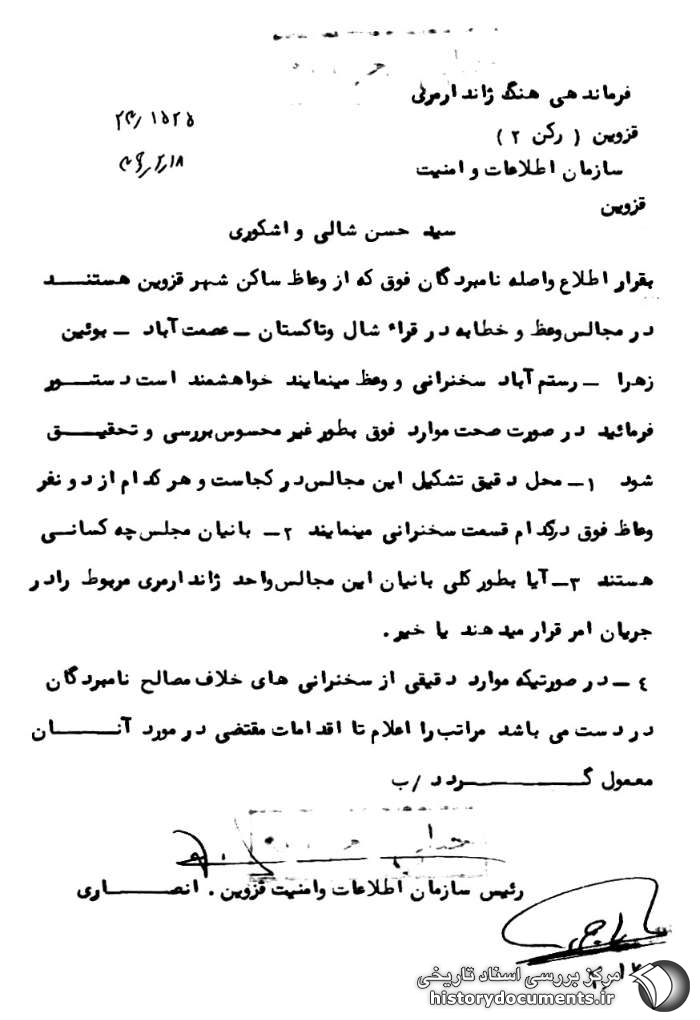 فرماندهی هنگ ژاندارمری
قزوین ( رکن ۲ )
۲۴/۱۵۲۵
سازمان اطلاعات و امنیت
۴۶/۲/۱۸
قزوین
سید حسن شالی و اشکوری
بقرار اطلاع واصله نامبردگان فوق که از وعاظ ساکن شهر قزوین هستنــــد
در مجالس وعظ و خطابه در قراء شال وتاکستان ــ عصمت آباد ــ بوئین
زهرا ــ رستم آباد سخنرانی و وعظ مینمایند خواهشمند است دستــــور
فرمائید در صورت صحت موارد فوق بطور غیر محسوس بررسی و تحقیــــق
شود ۱ــ محل دقیق تشکیل این مجالس در کجاست و هر کدام از دو نفر
وعاظ فوق درکدام قسمت سخنرانی مینمایند ۲ــ بانیان مجلس چه کسانــی
هستند ۳ــ آیا بطور کلی بانیان این مجالس واحد ژاندارمری مربوط رادر
جریان امر قرار میدهند یا خیر .
٤ ــ در صورتیکه موارد دقیقی از سخنرانی های خلاف مصالح نامبردگان
در دست می باشد مراتب را اعلام تا اقدامات مقتضی در مورد آنـــــان
معمول گــــــــــردد /ب
رئیس سازمان اطلاعات وامنیت قزوین . انصــــــاری
مرکز بررسی اسناد تاریخی
historydocuments.ir